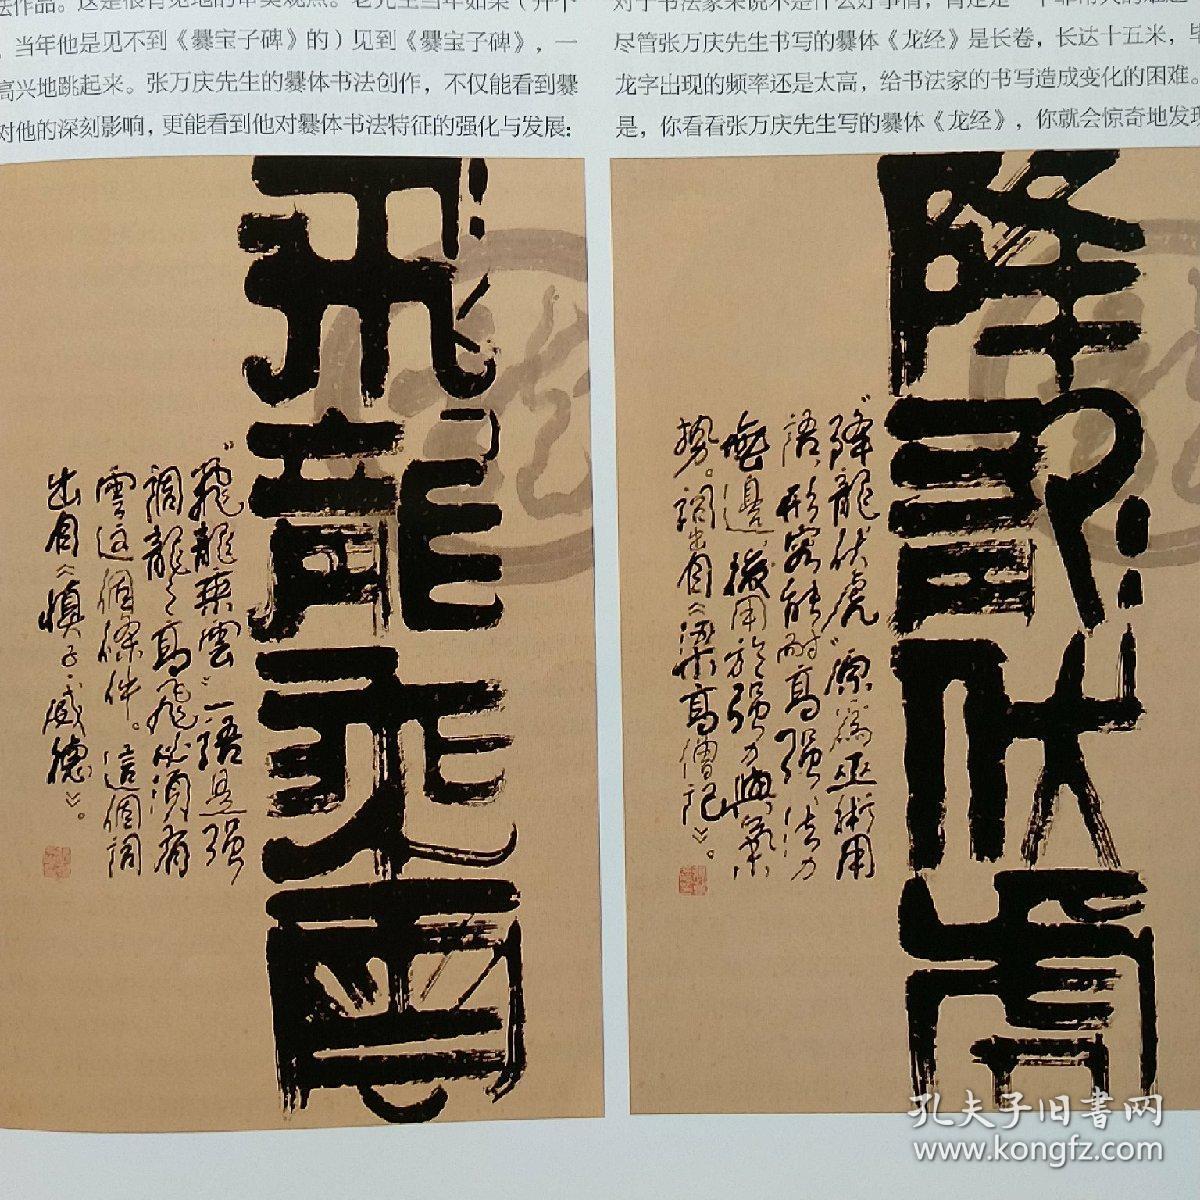 法作品。这是很有见地的审美观点。老先生当年如果（并不
当年他是见不到《爨宝子碑》的）见到《爨宝子碑》，一
高兴地跳起来。张万庆先生的爨体书法创作，不仅能看到爨
对他的深刻影响，更能看到他对爨体书法特征的强化与发展：
对于书法家来说不是什么好事情，肯定是一个非常大的难题
尽管张万庆先生书写的爨体《龙经》是长卷，长达十五米，毕
龙字出现的频率还是太高，给书法家的书写造成变化的困难。
是，你看看张万庆先生写的爨体《龙经》，你就会惊奇地发现
飛龍乘雲
“飛龍乘雲”一語是强
調龍之高飛必須有
雲這個條件。這個詞
出自《慎子·威德》。
降龍伏虎
“降龍伏虎”原為巫術用
語，形容能耐高强，法力
無邊，後用於强力與氣
勢。詞出自《梁高僧記》。
孔夫子旧書网
www.kongfz.com